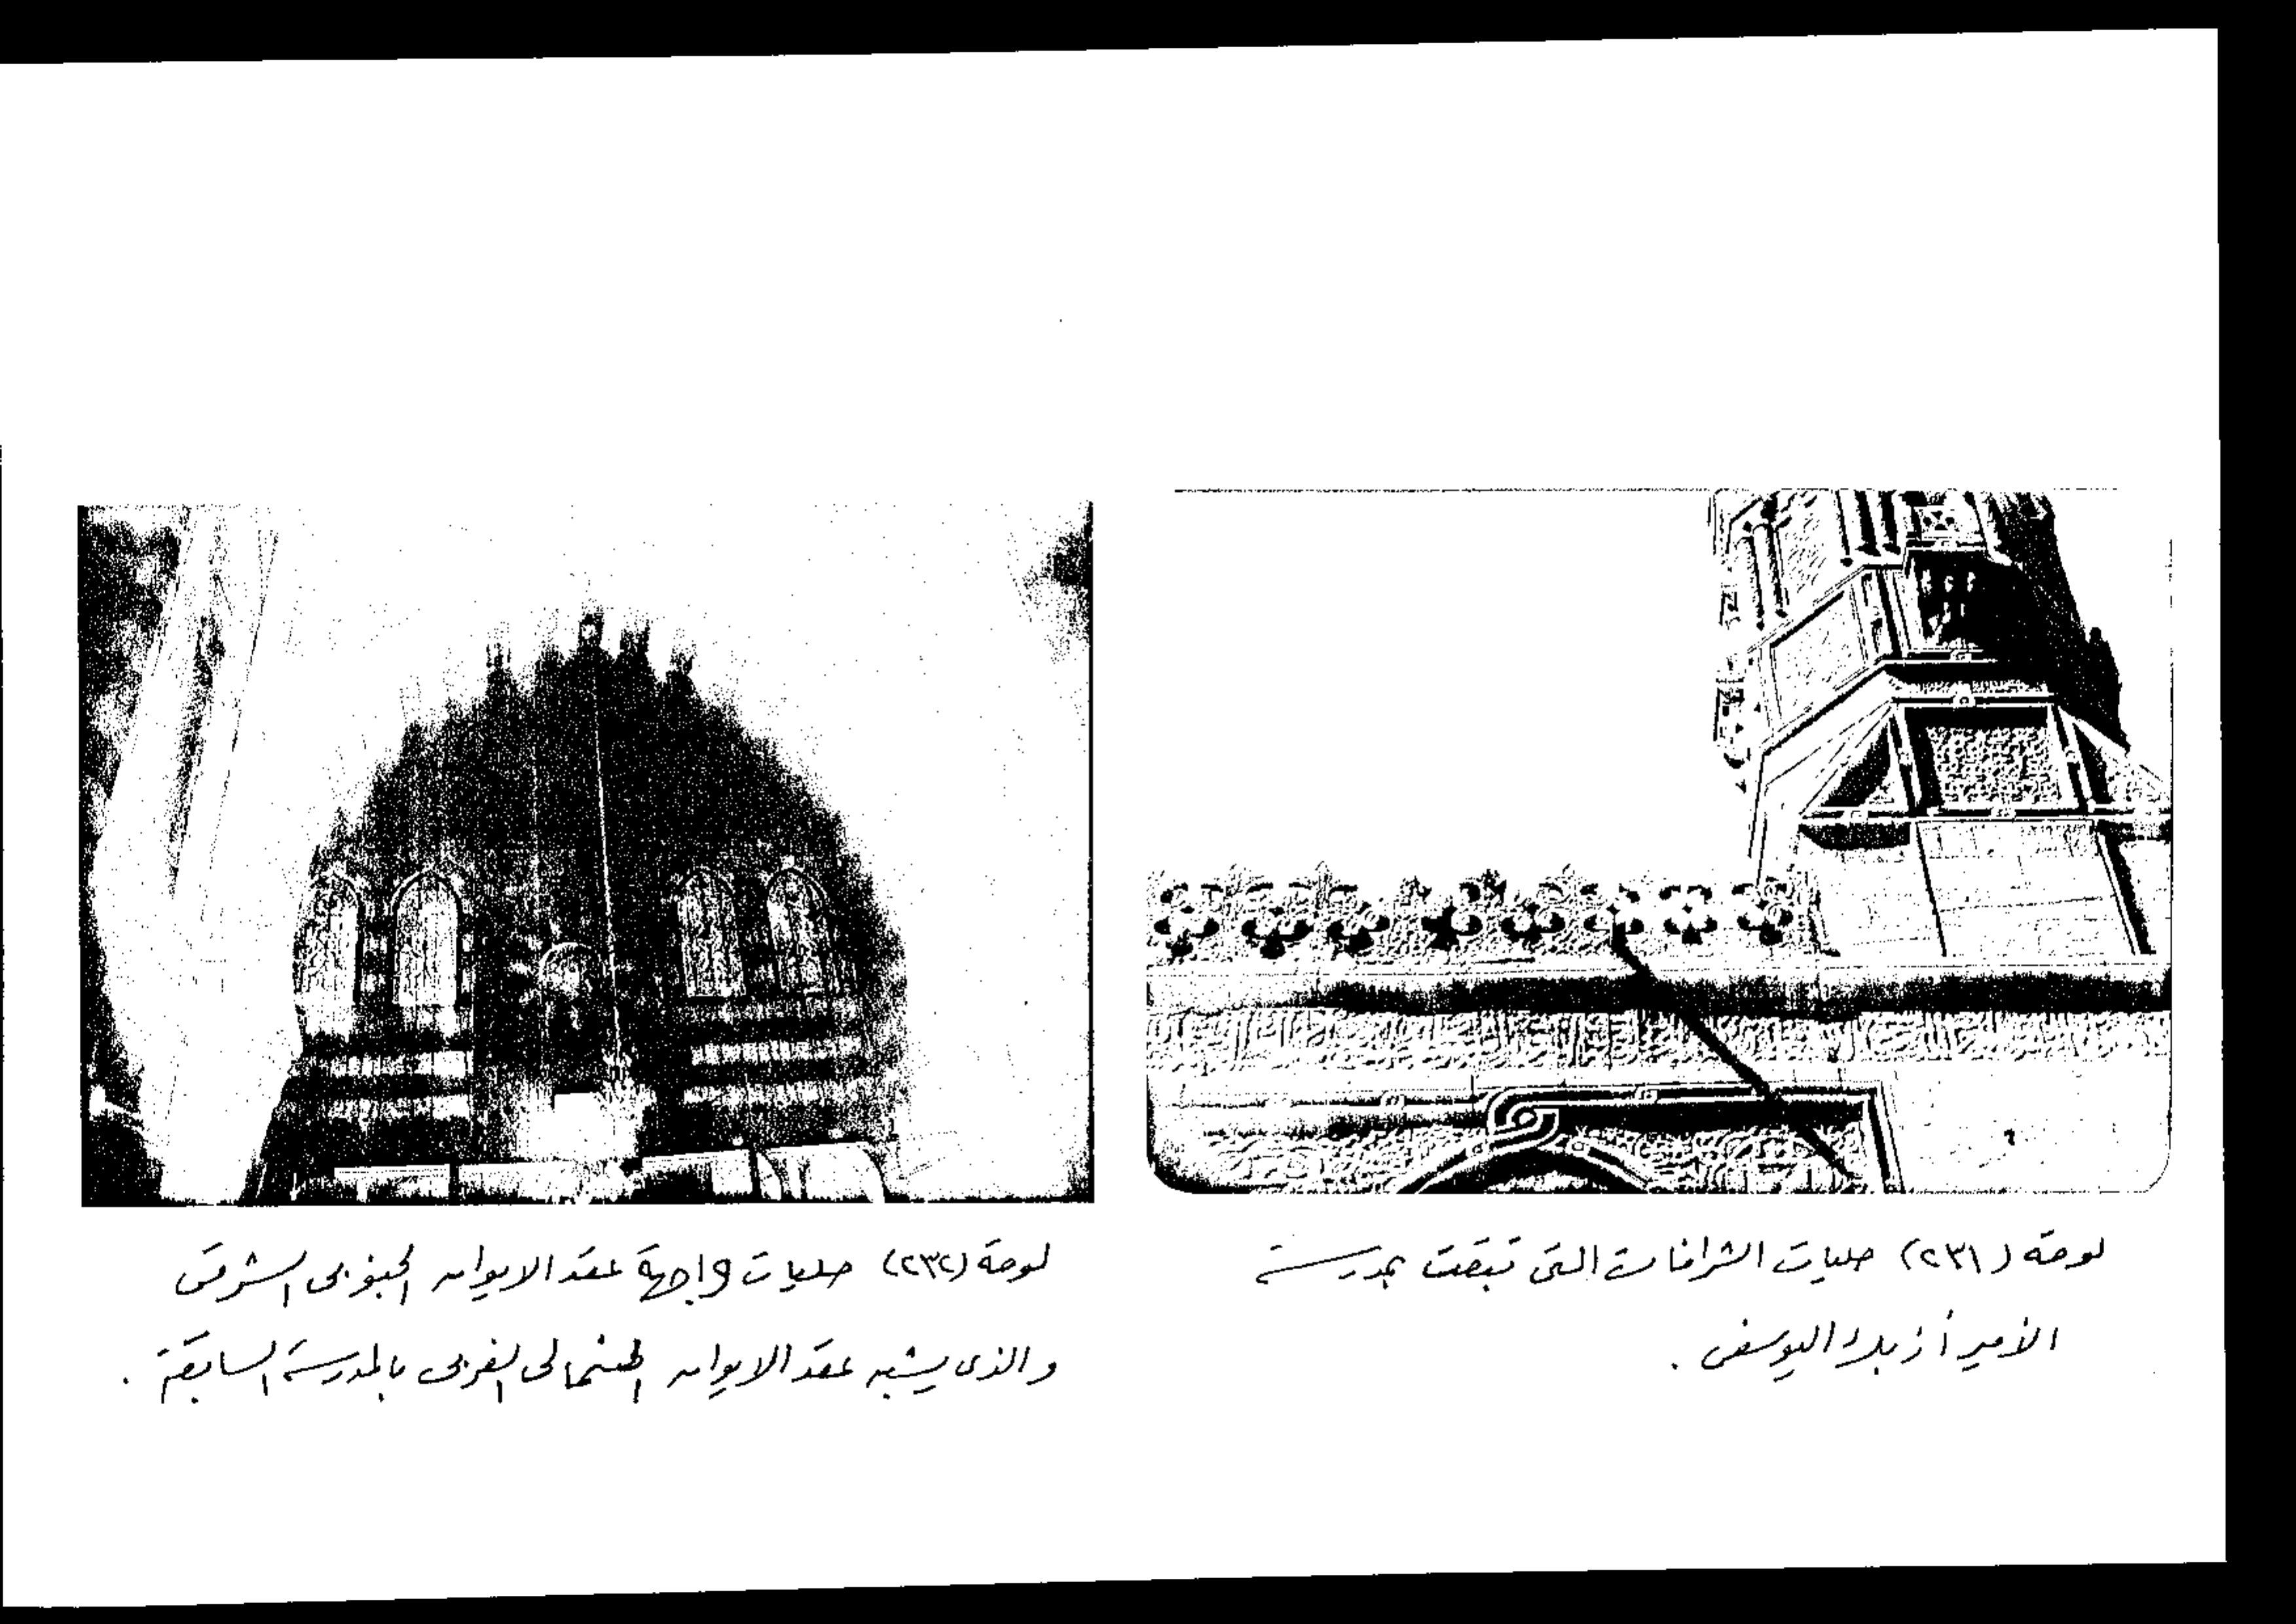 لوحة (٢٣١) حليات الشرافات التى تبقت بمدرسة
الأمير أزبك اليوسفى .
لوحة (٢٣٢) حليات واجهة عقد الايوان الجنوبى الشرقى
والذى يشبه عقد الايوان الشمالى الغربى بالمدرسة السابقة .